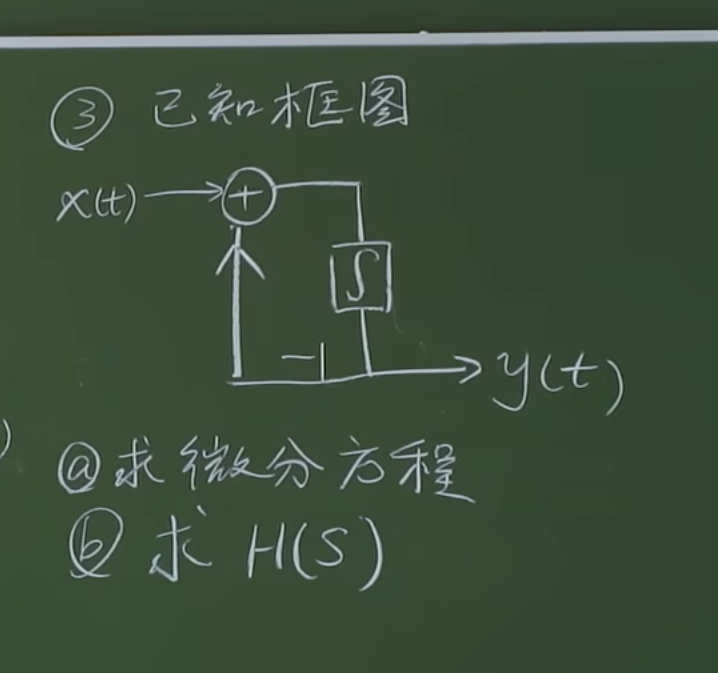 ③ 已知框图
x(t)
+
∫
-1
y(t)
ⓐ 求微分方程
ⓑ 求 H(S)